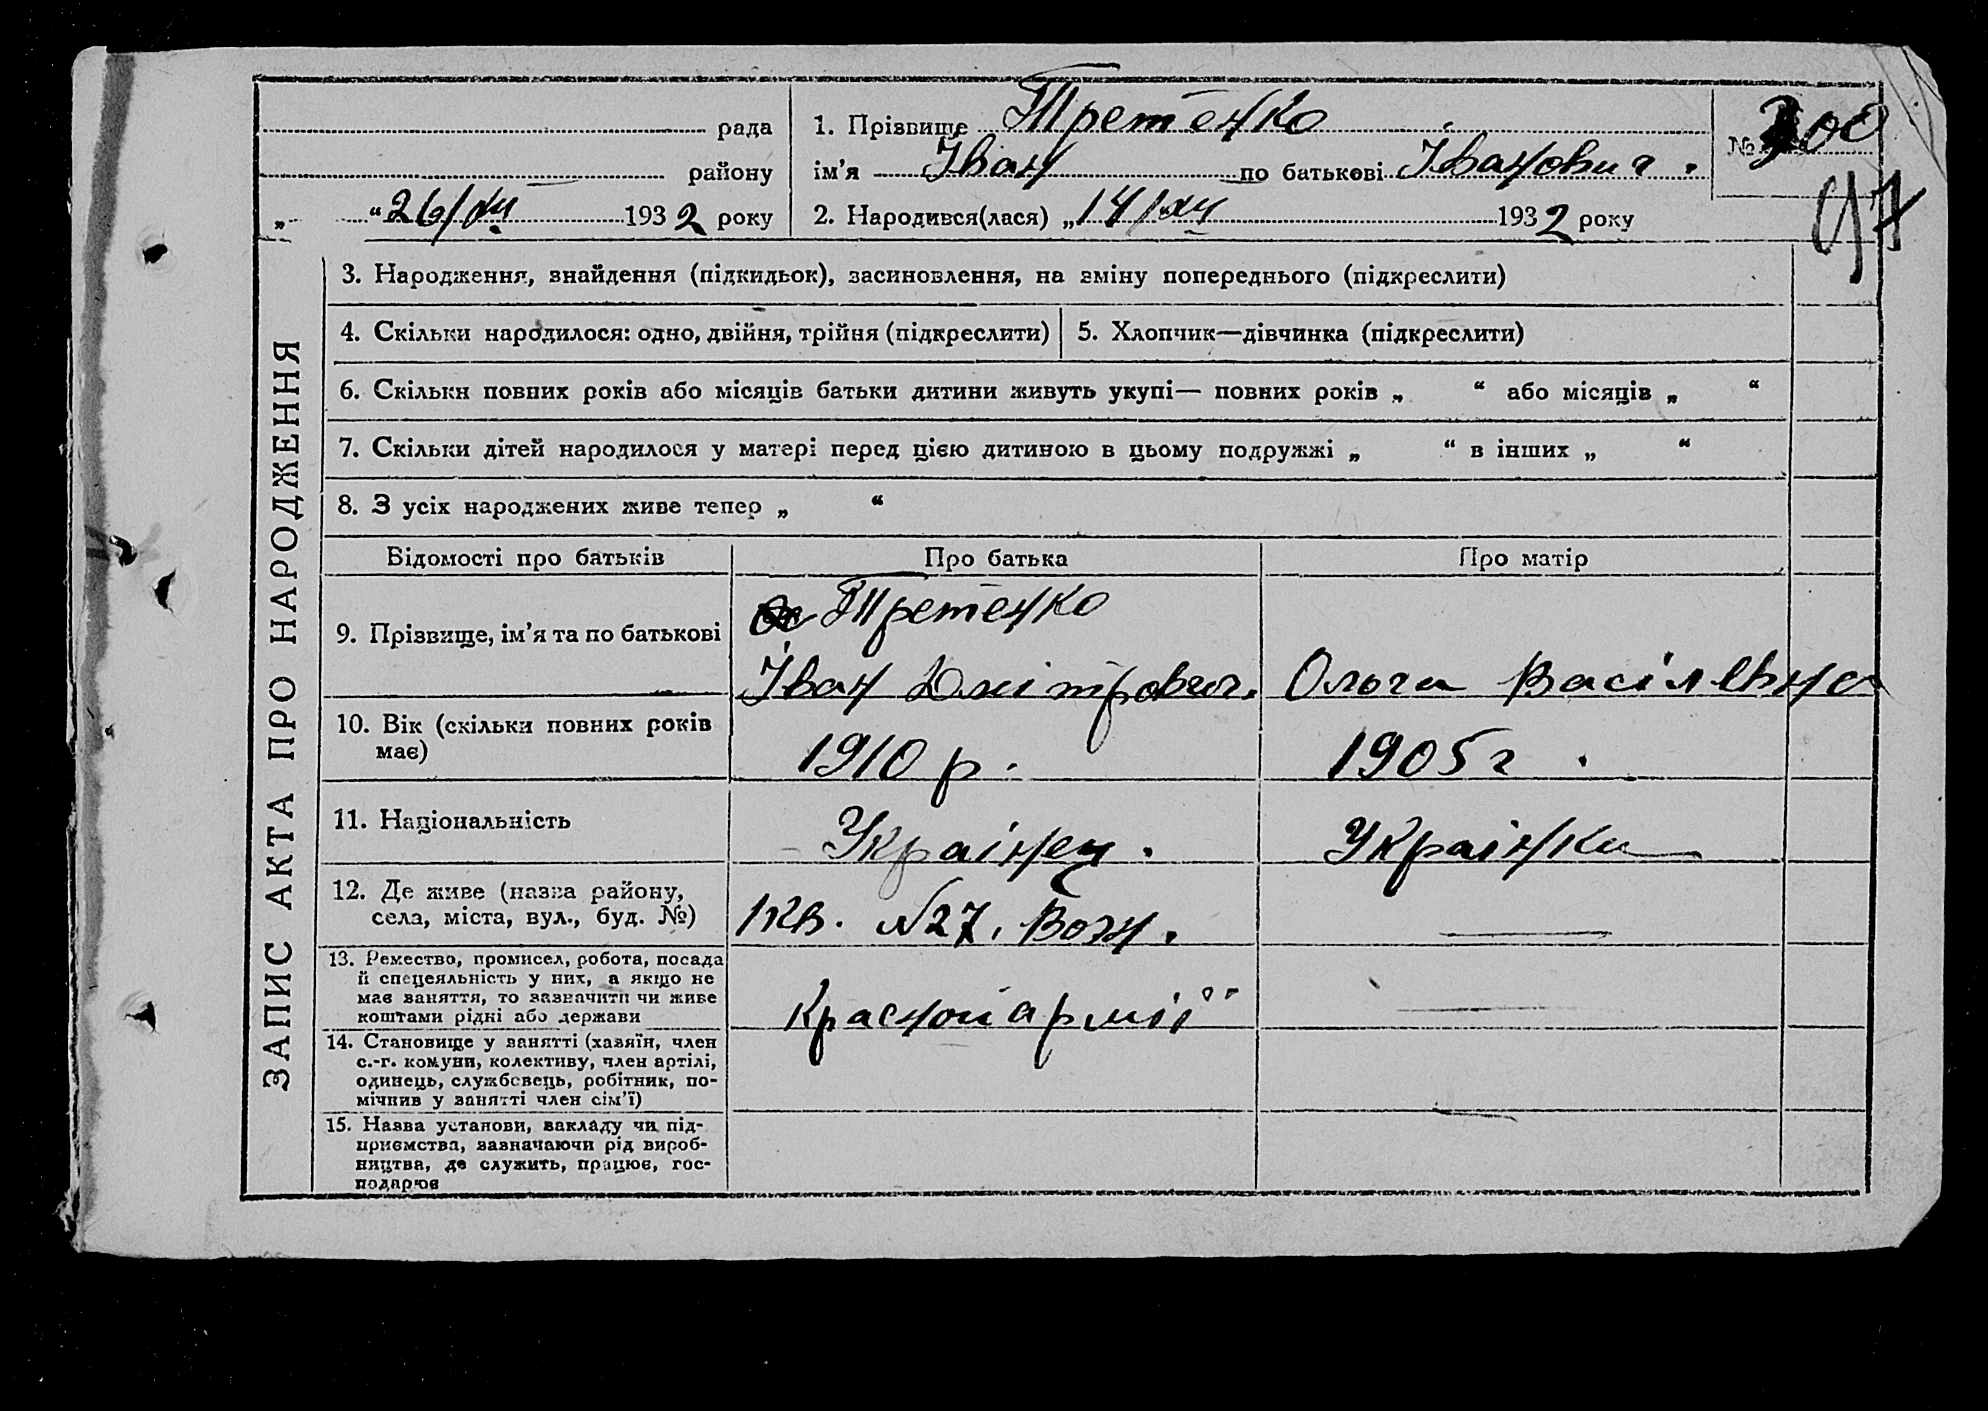 рада
району
„ “ 26/XII 1932 року
1. Прізвище Третенко
ім’я Іван по батькові Іванович.
2. Народився(лася) „14/XII 1932 року
№ 300
97
ЗАПИС АКТА ПРО НАРОДЖЕННЯ
3. Народження, знайдення (підкидьок), засиновлення, на зміну попереднього (підкреслити)
4. Скільки народилося: одно, двійня, трійня (підкреслити)
5. Хлопчик—дівчинка (підкреслити)
6. Скільки повних років або місяців батьки дитини живуть укупі— повних років „ “ або місяців „ “
7. Скільки дітей народилося у матері перед цією дитиною в цьому подружжі „ “ в інших „ “
8. З усіх народжених живе тепер „ “
Відомості про батьків
Про батька
Про матір
9. Прізвище, ім’я та по батькові
Третенко
Іван Дмітрович.
Ольга Васілевна
10. Вік (скільки повних років
має)
1910 р.
1905 г.
11. Національність
Украінец.
Украінка
12. Де живе (назва району,
села, міста, вул., буд. №)
Кв. №27.
13. Ремество, промисел, робота, посада
й спецеяльність у них, а якщо не
має заняття, то зазначити чи живе
коштами рідні або держави
Красной армії
14. Становище у занятті (хазяїн, член
с.-г. комуни, колективу, член артілі,
одинець, службовець, робітник, по-
мічнив у занятті член сім’ї)
15. Назва установи, закладу чи під-
приємства, зазначаючи рід вироб-
ництва, де служить, працює, гос-
подарює